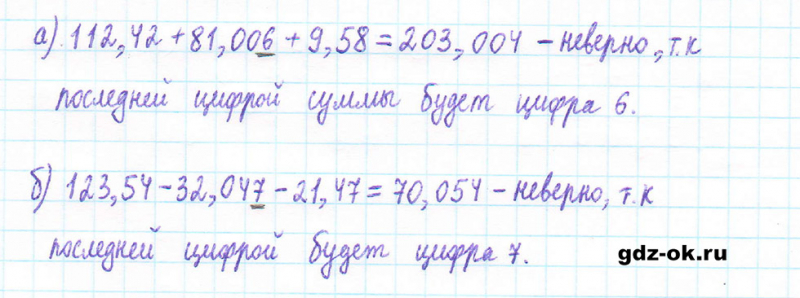 а) 112,42 + 81,006 + 9,58 = 203,004 – неверно, т.к
последней цифрой суммы будет цифра 6.
б) 123,54 – 32,047 – 21,47 = 70,054 – неверно, т.к
последней цифрой будет цифра 7.
gdz-ok.ru